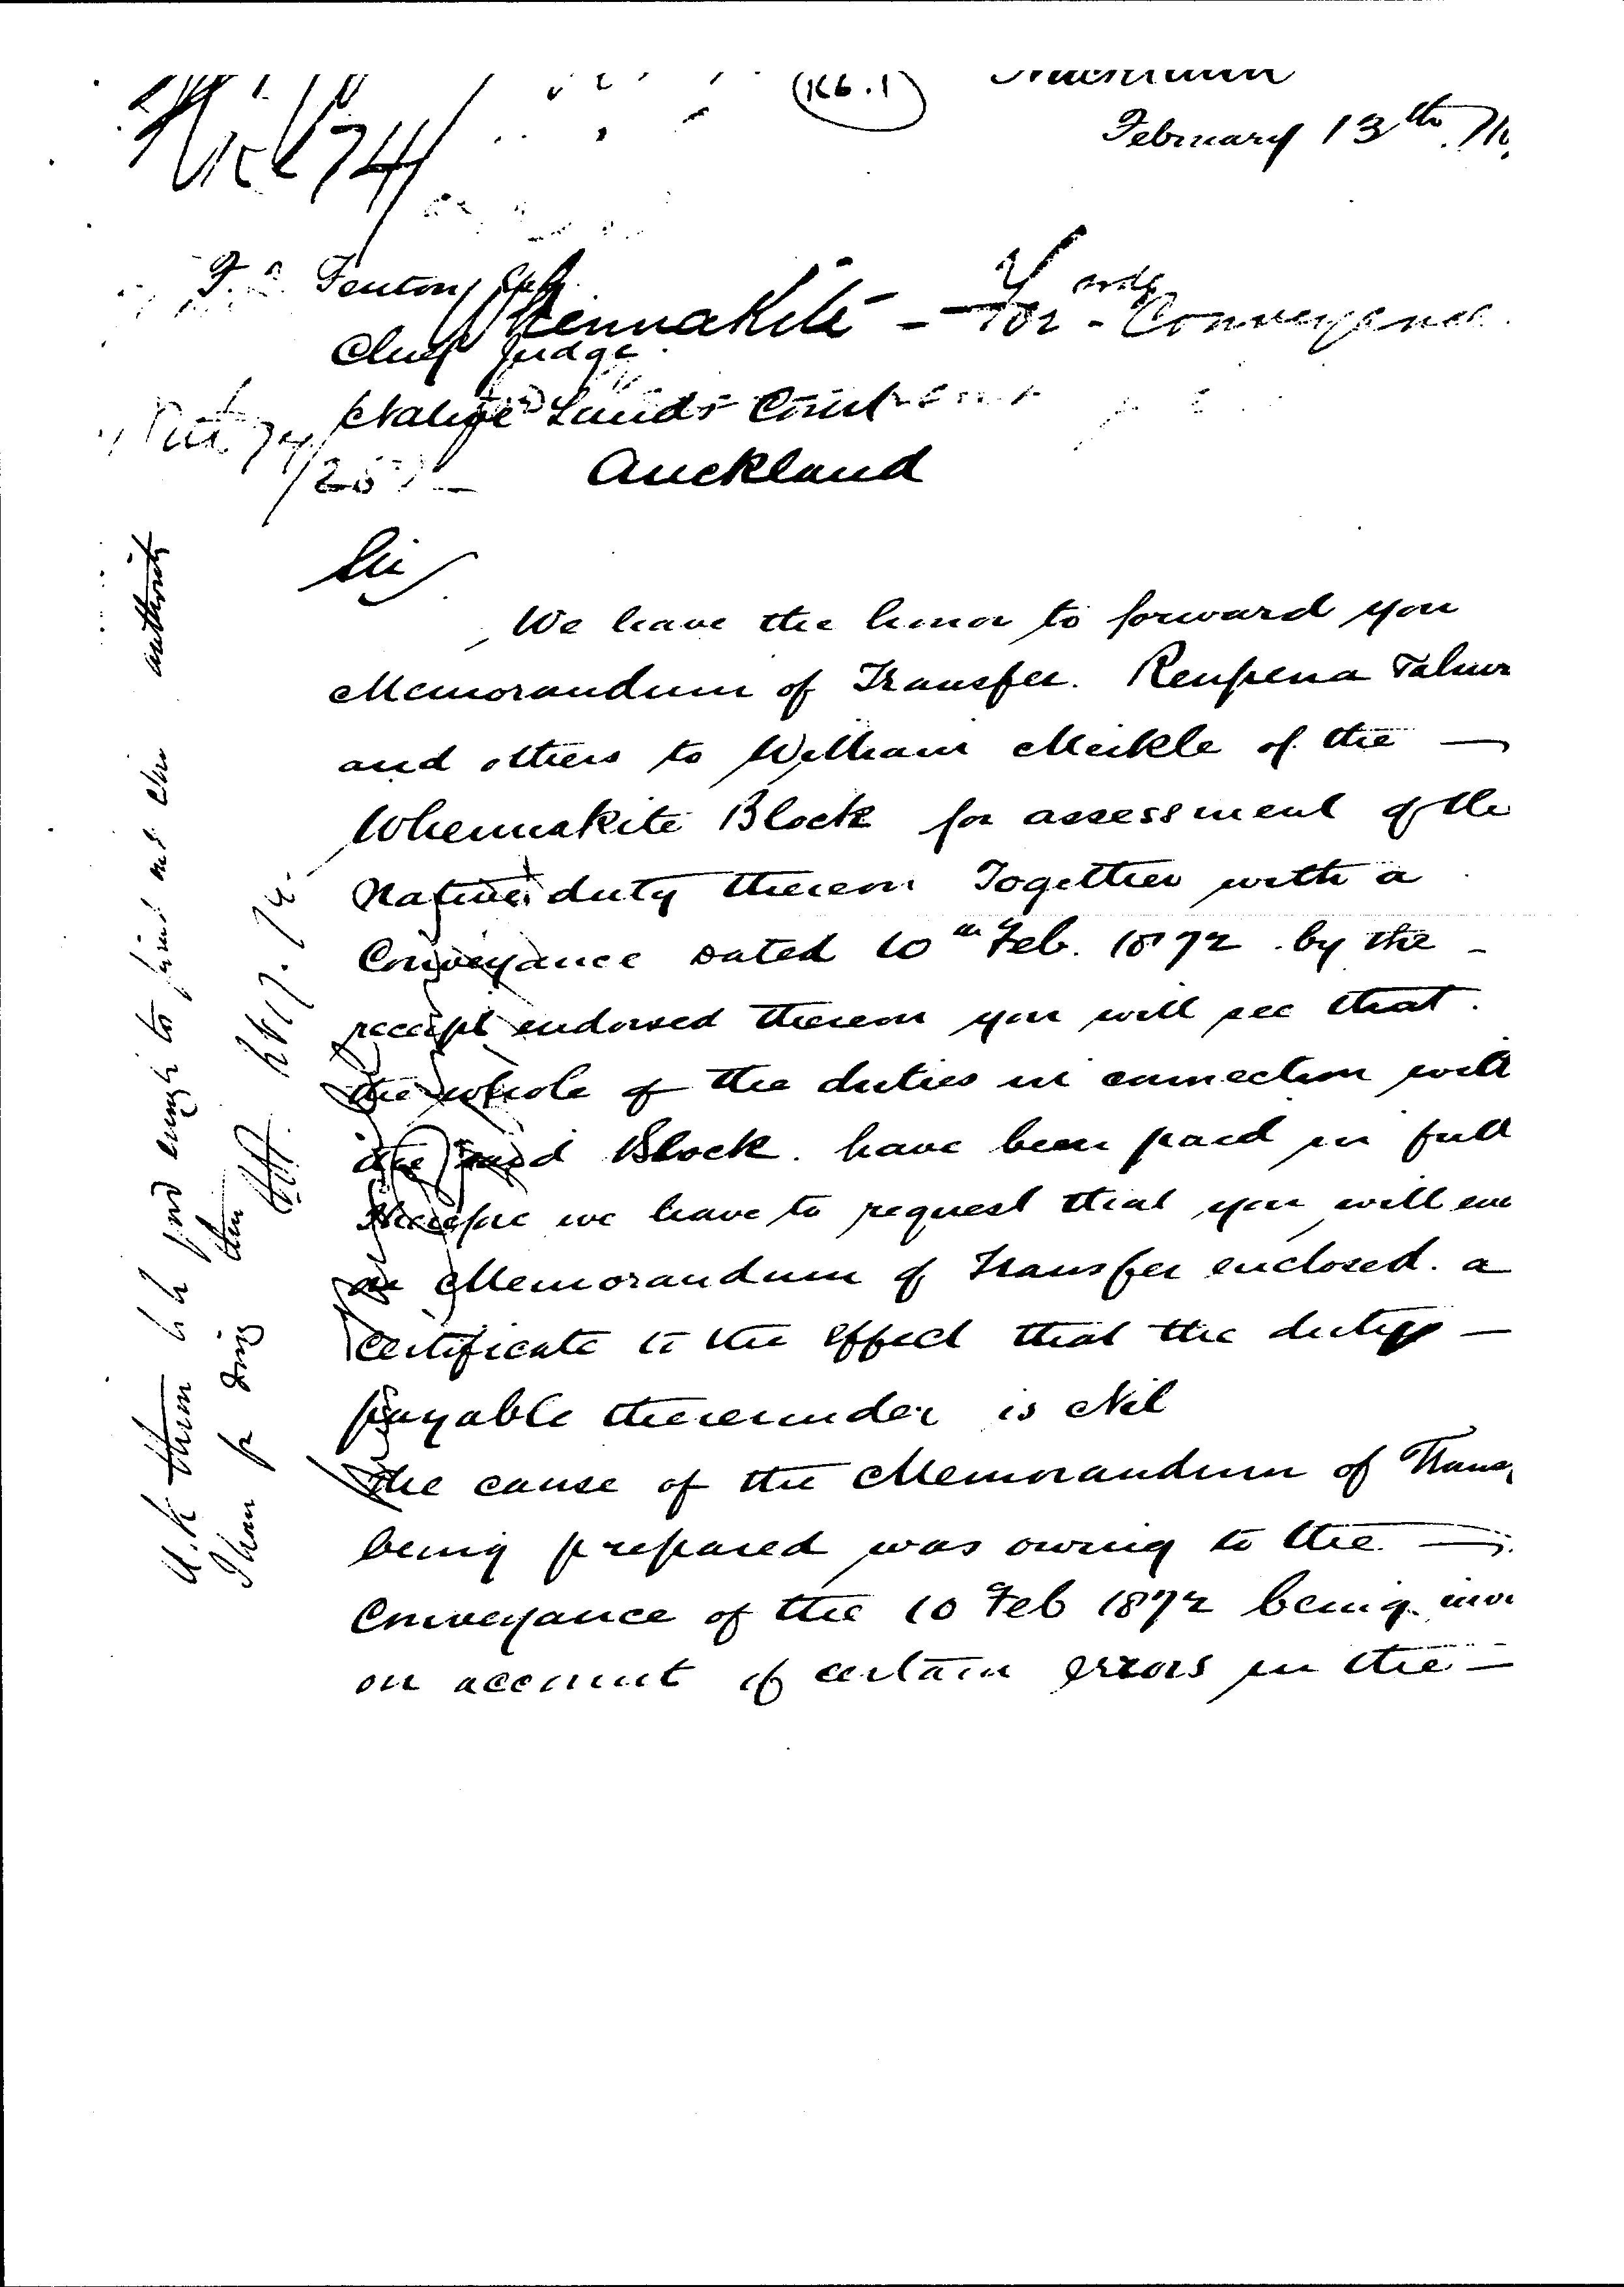 (K6.1)
February 13th
F. Fenton Esq
Whennakite - For - Conveyance
Chief Judge
Native Lands Court
Auckland
Sir
We have the honor to forward you
Memorandum of Transfer. Reupena
and others to William Meikle of the —
Whennakite Block for assessment of the
Native duty thereon Together with a
Conveyance dated 10th Feb. 1872 by the -
receipt endorsed thereon you will see that
the whole of the duties in connection with
the said Block have been paid in full
therefore we have to request that you will
on Memorandum of Transfer enclosed. a
certificate to the effect that the duty —
payable thereunder is Nil
The cause of the Memorandum of
being prepared was owing to the —
Conveyance of the 10 Feb 1872 being
on account of certain errors in the —
Ask them to be good enough to
authority